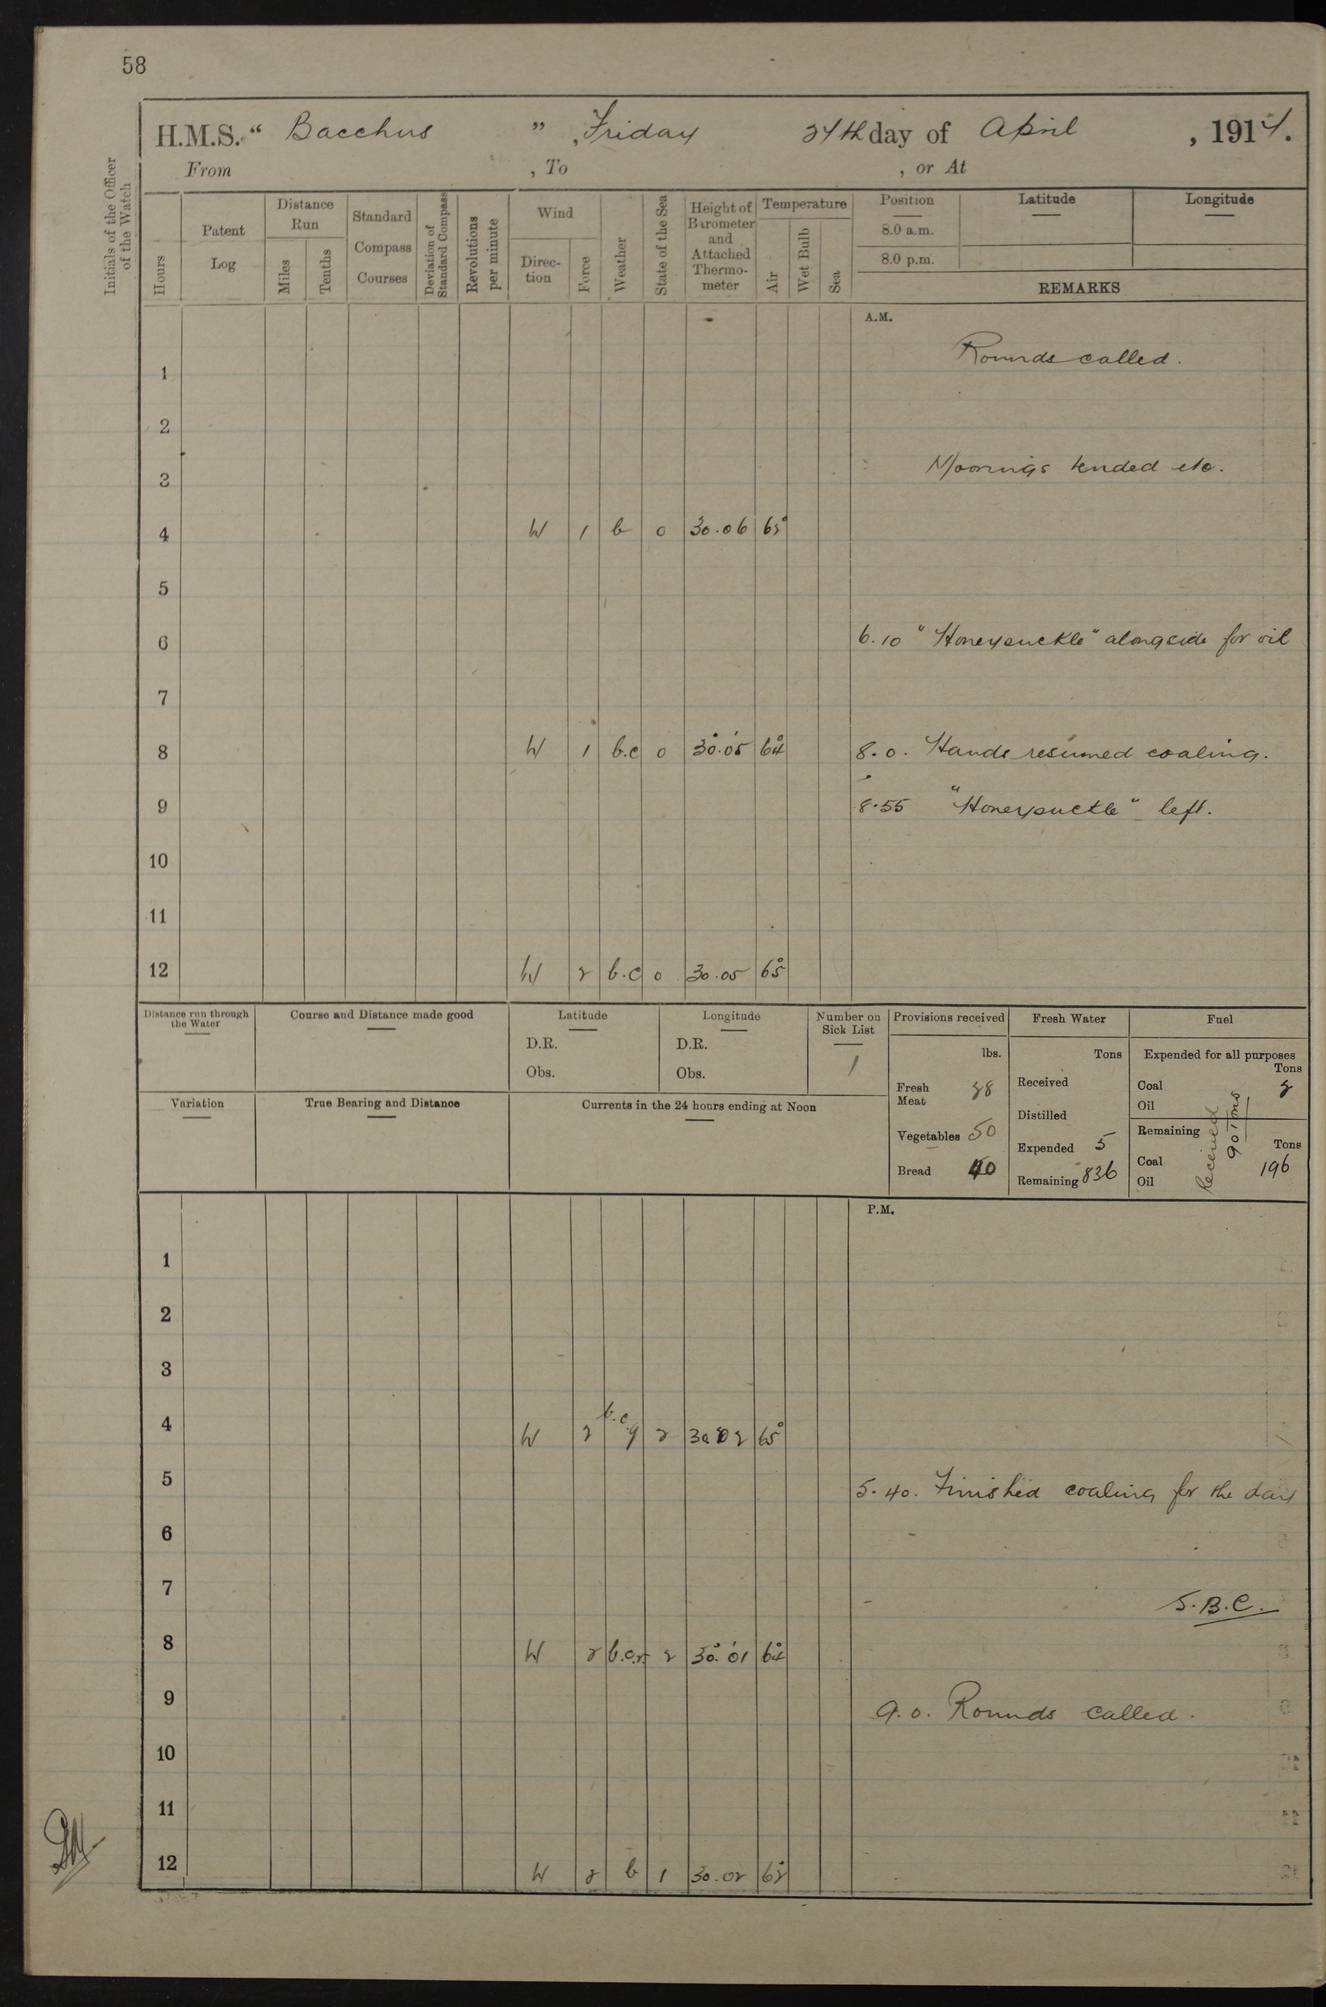 58
H.M.S. "Bacchus", Friday 24th day of April, 1914.
From , To , or At
Initials of the Officer of the Watch
Hours
Patent Log
Distance Run
Miles
Tenths
Standard Compass Courses
Deviation of Standard Compass
Revolutions per minute
Wind
Direction
Force
Weather
State of the Sea
Height of Barometer and Attached Thermometer
Temperature
Air
Wet Bulb
Sea
Position Latitude Longitude
8.0 a.m.
8.0 p.m.
REMARKS
A.M.
Rounds called.
1
2
Moorings tended etc.
3
4 W 1 b 0 30.06
5
6 6.10 "Honeysuckle" alongside for oil
7
8 W 1 b.c 0 30.05 64° 8.0. Hands resumed coaling.
9 8.55 "Honeysuckle" left.
10
11
12 W 2 b.c 0 30.05 65°
Distance run through the Water
Course and Distance made good
Latitude
D.R.
Obs.
Longitude
D.R.
Obs.
Number on Sick List
1
Variation
True Bearing and Distance
Currents in the 24 hours ending at Noon
Provisions received
lbs.
Fresh Meat 38
Vegetables 50
Bread 40
Fresh Water
Tons
Received
Distilled
Expended 5
Remaining 836
Fuel
Expended for all purposes
Tons
Coal 2
Oil
Remaining
Tons
Coal 196
Oil
Received 90 Tons
P.M.
1
2
3
4 W 2 b.c.q 2 30.02 65°
5 5.40. Finished coaling for the day
6
7 S.B.C.
8 W 2 b.c.r 2 30.01 64°
9 9.0. Rounds called.
10
11
12 W 2 b 1 30.02 62°